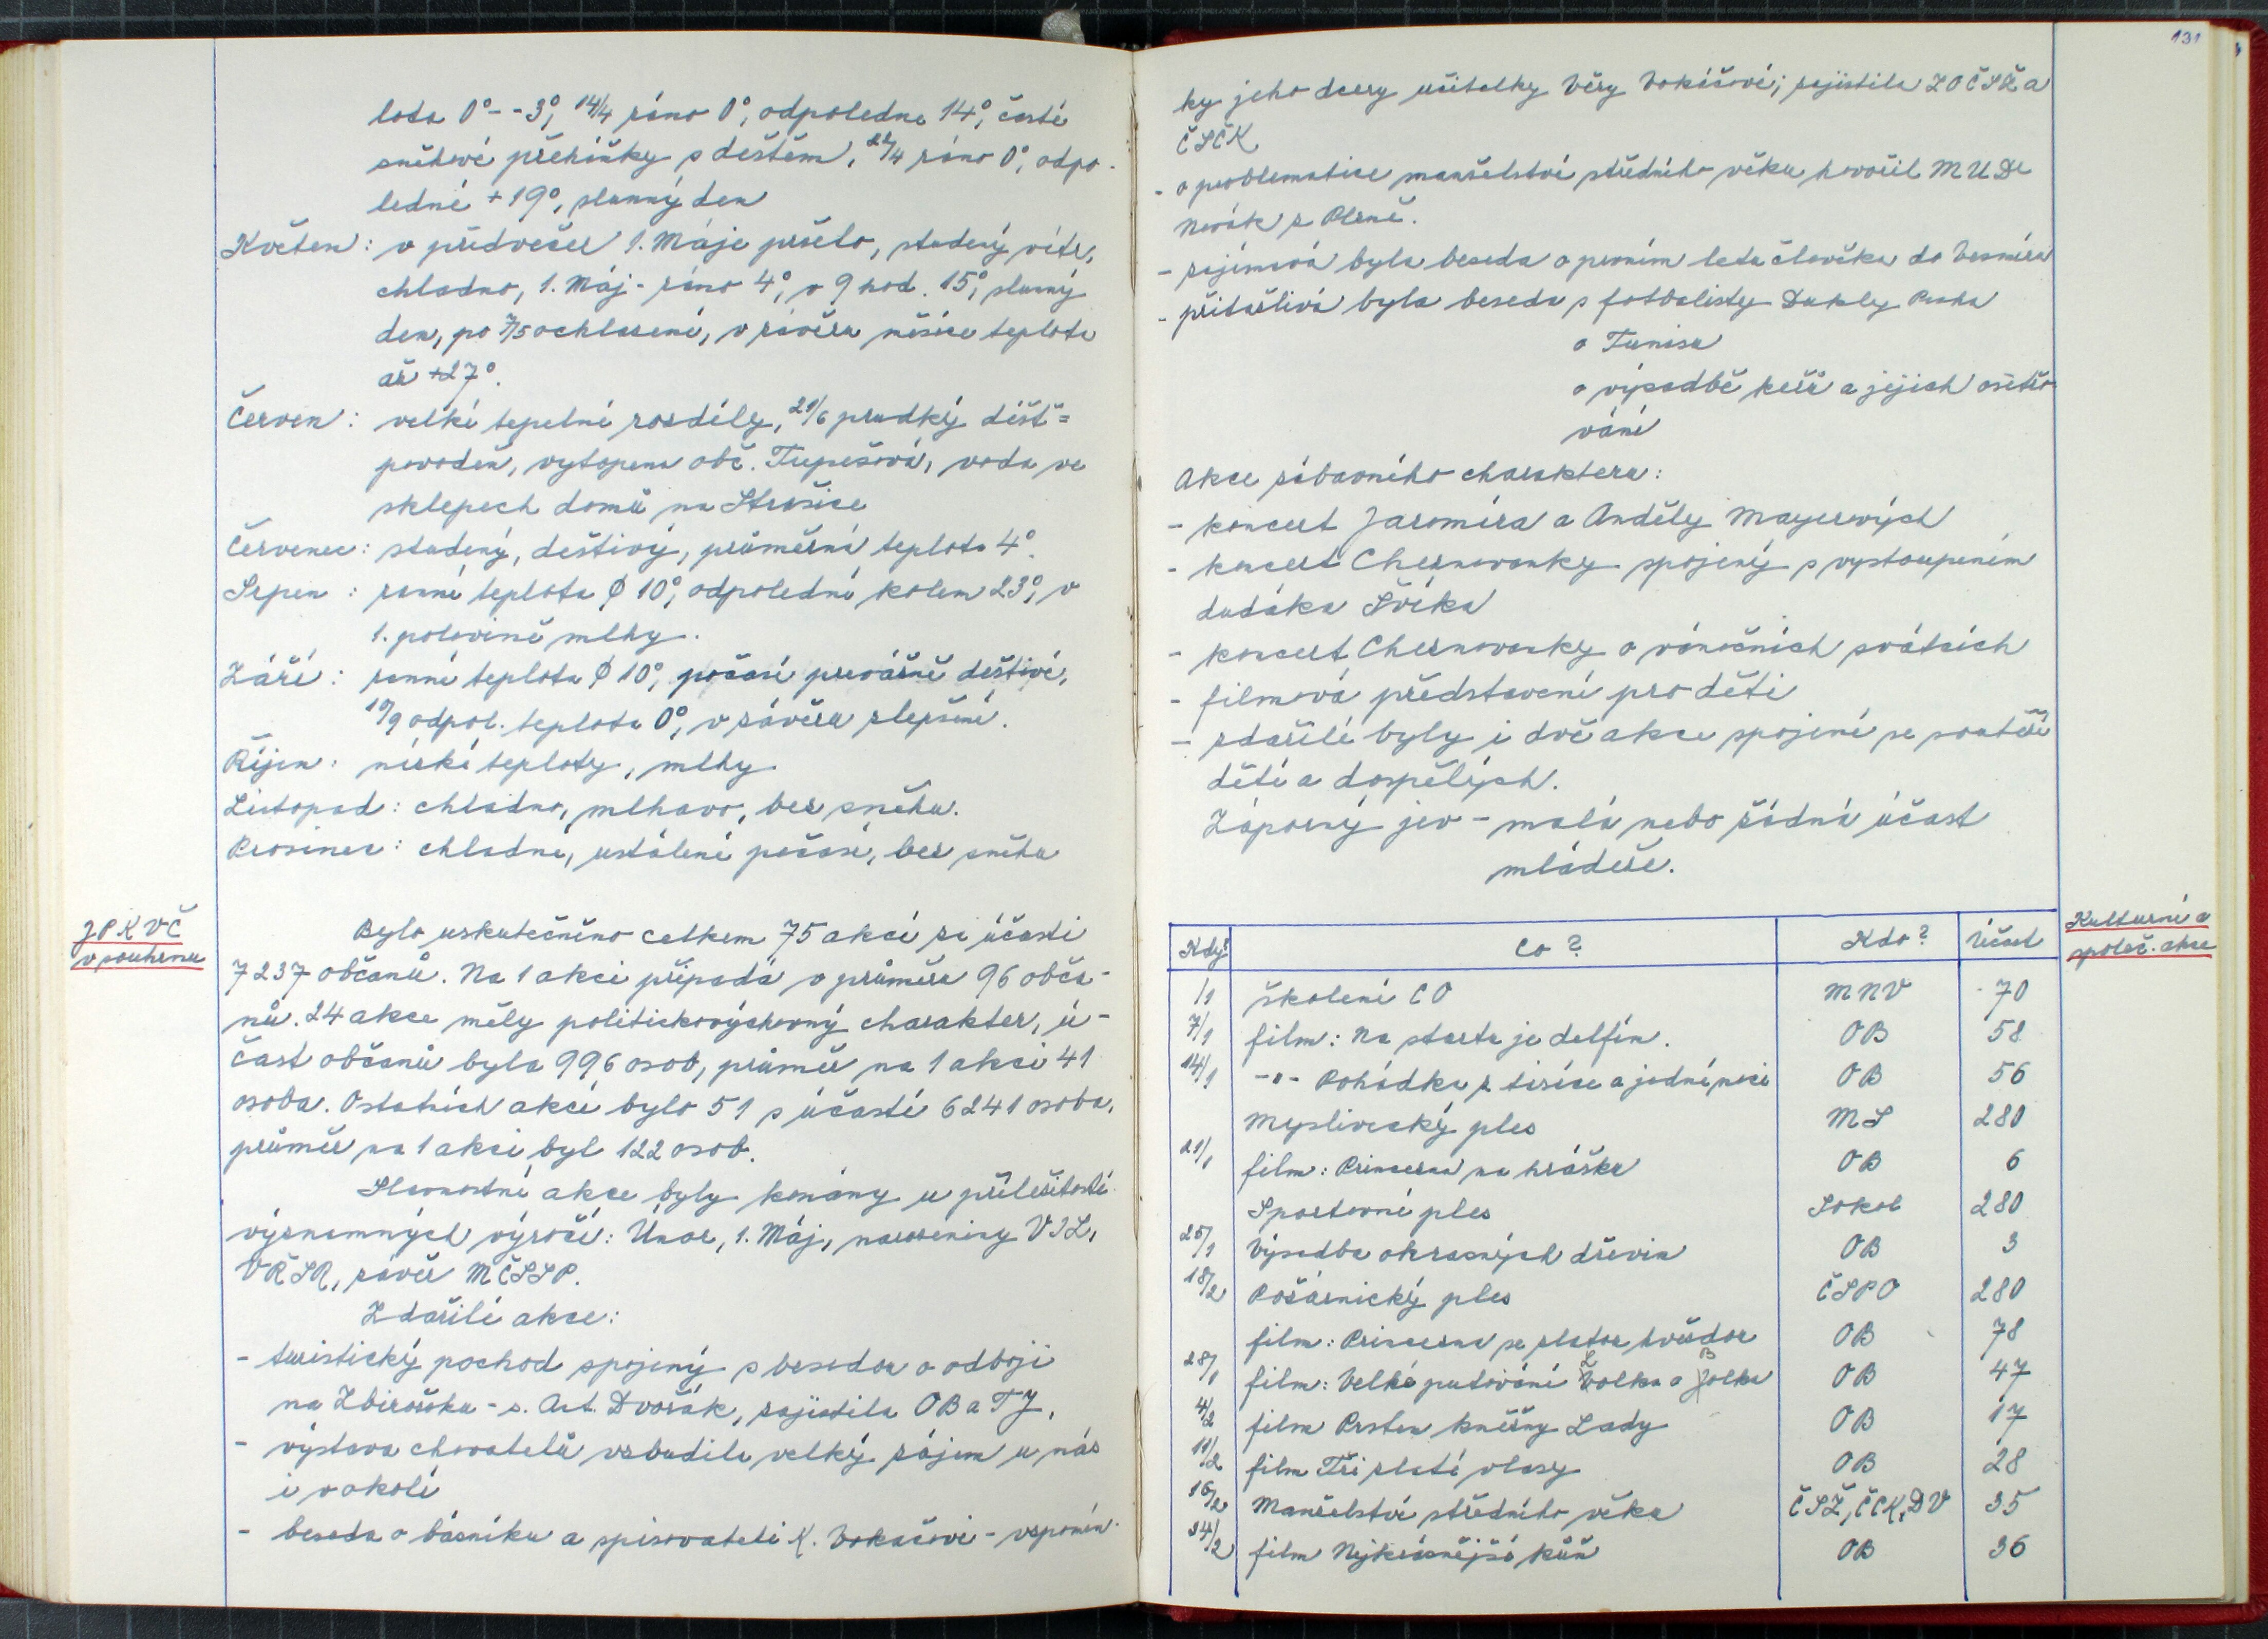 lota 0° - -3°, 14/4 ráno 0°, odpoledne 14°, časté
sněhové přeháňky s deštěm, 22/4 ráno 0°, odpo-
ledne +19°, slunný den
Květen: v předvečer 1. Máje pršelo, studený vítr,
chladno, 1. Máj - ráno 4°, v 9 hod. 15°, slunný
den, po 7/5 ochlazení, v závěru měsíce teplota
až +27°.
Červen: velké tepelné rozdíly, 21/6 prudký déšť =
povodeň, vytopena obč. Tupešová, voda ve
sklepech domů na Strašice
Červenec: studený, deštivý, průměrná teplota 4°.
Srpen: ranní teplota ϕ 10°, odpolední kolem 23°, v
1. polovině mlhy.
Září: ranní teplota ϕ 10°, počasí převážně deštivé,
19/9 odpol. teplota 0°, v závěru zlepšení.
Říjen: nízké teploty, mlhy
Listopad: chladno, mlhavo, bez sněhu.
Prosinec: chladné, ustálené počasí, bez sněhu
JPKVČ
v souhrnu
Bylo uskutečněno celkem 75 akcí za účasti
7237 občanů. Na 1 akci připadá v průměru 96 obča-
nů. 24 akce měly politickovýchovný charakter, ú-
čast občanů byla 996 osob, průměr na 1 akci 41
osoba. Ostatních akcí bylo 51 s účastí 6241 osoba,
průměr na 1 akci byl 122 osob.
Slavnostní akce byly konány u příležitosti
významných výročí: Únor, 1. Máj, narozeniny VIL,
VŘSR, závěr MČSSP.
Zdařilé akce:
- turistický pochod spojený s besedou o odboji
na Zbirožsku - s. Ant. Dvořák, zajistila OB a TJ,
- výstava chovatelů vzbudila velký zájem u nás
i v okolí
- beseda o básníku a spisovateli K. Vokáčovi - vzpomín-
131
ky jeho dcery učitelky Věry Vokáčové; zajistila ZO ČSŽ a
ČSČK
- o problematice manželství středního věku hovořil MUDr
Novák z Plzně.
- zajímavá byla beseda o prvním letu člověka do Vesmíru
- přitažlivá byla beseda s fotbalisty Dukly Praha
o Tunisu
o výsadbě keřů a jejich ošetřo-
vání
Akce zábavního charakteru:
- koncert Jaromíra a Anděly Mayerových
- koncert Chernovanky spojený s vystoupením
dudáka Švíka
- koncert Chernovanky o vánočních svátcích
- filmová představení pro děti
- zdařilé byly i dvě akce spojené se soutěží
dětí a dospělých.
Záporný jev - malá nebo žádná účast
mládeže.
Kulturní a
společ. akce
Kdy? Co? Kdo? Účast
/1 školení CO MNV 70
7/1 film: Na startu je delfín. OB 58
14/1 -"- Pohádka z tisíce a jedné noci OB 56
Myslivecký ples MS 280
21/1 film: Princezna na hrášku OB 6
Sportovní ples Sokol 280
25/1 Výsadba okrasných dřevin OB 3
18/2 Požárnický ples ČSPO 280
film: Princezna se zlatou hvězdou OB 78
28/1 film: Velké putování Bolka a Lolka OB 47
4/2 film Prsten kněžny Lady OB 17
11/2 film Tři zlaté vlasy OB 28
16/2 Manželství středního věku ČSŽ, ČČK, DV 35
24/2 film Nejkrásnější kůň OB 36